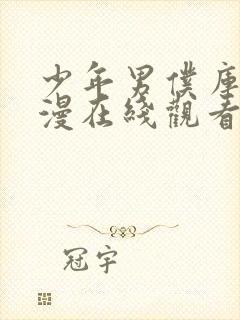 少年男僕庫
漫在綫觀看
冠宇